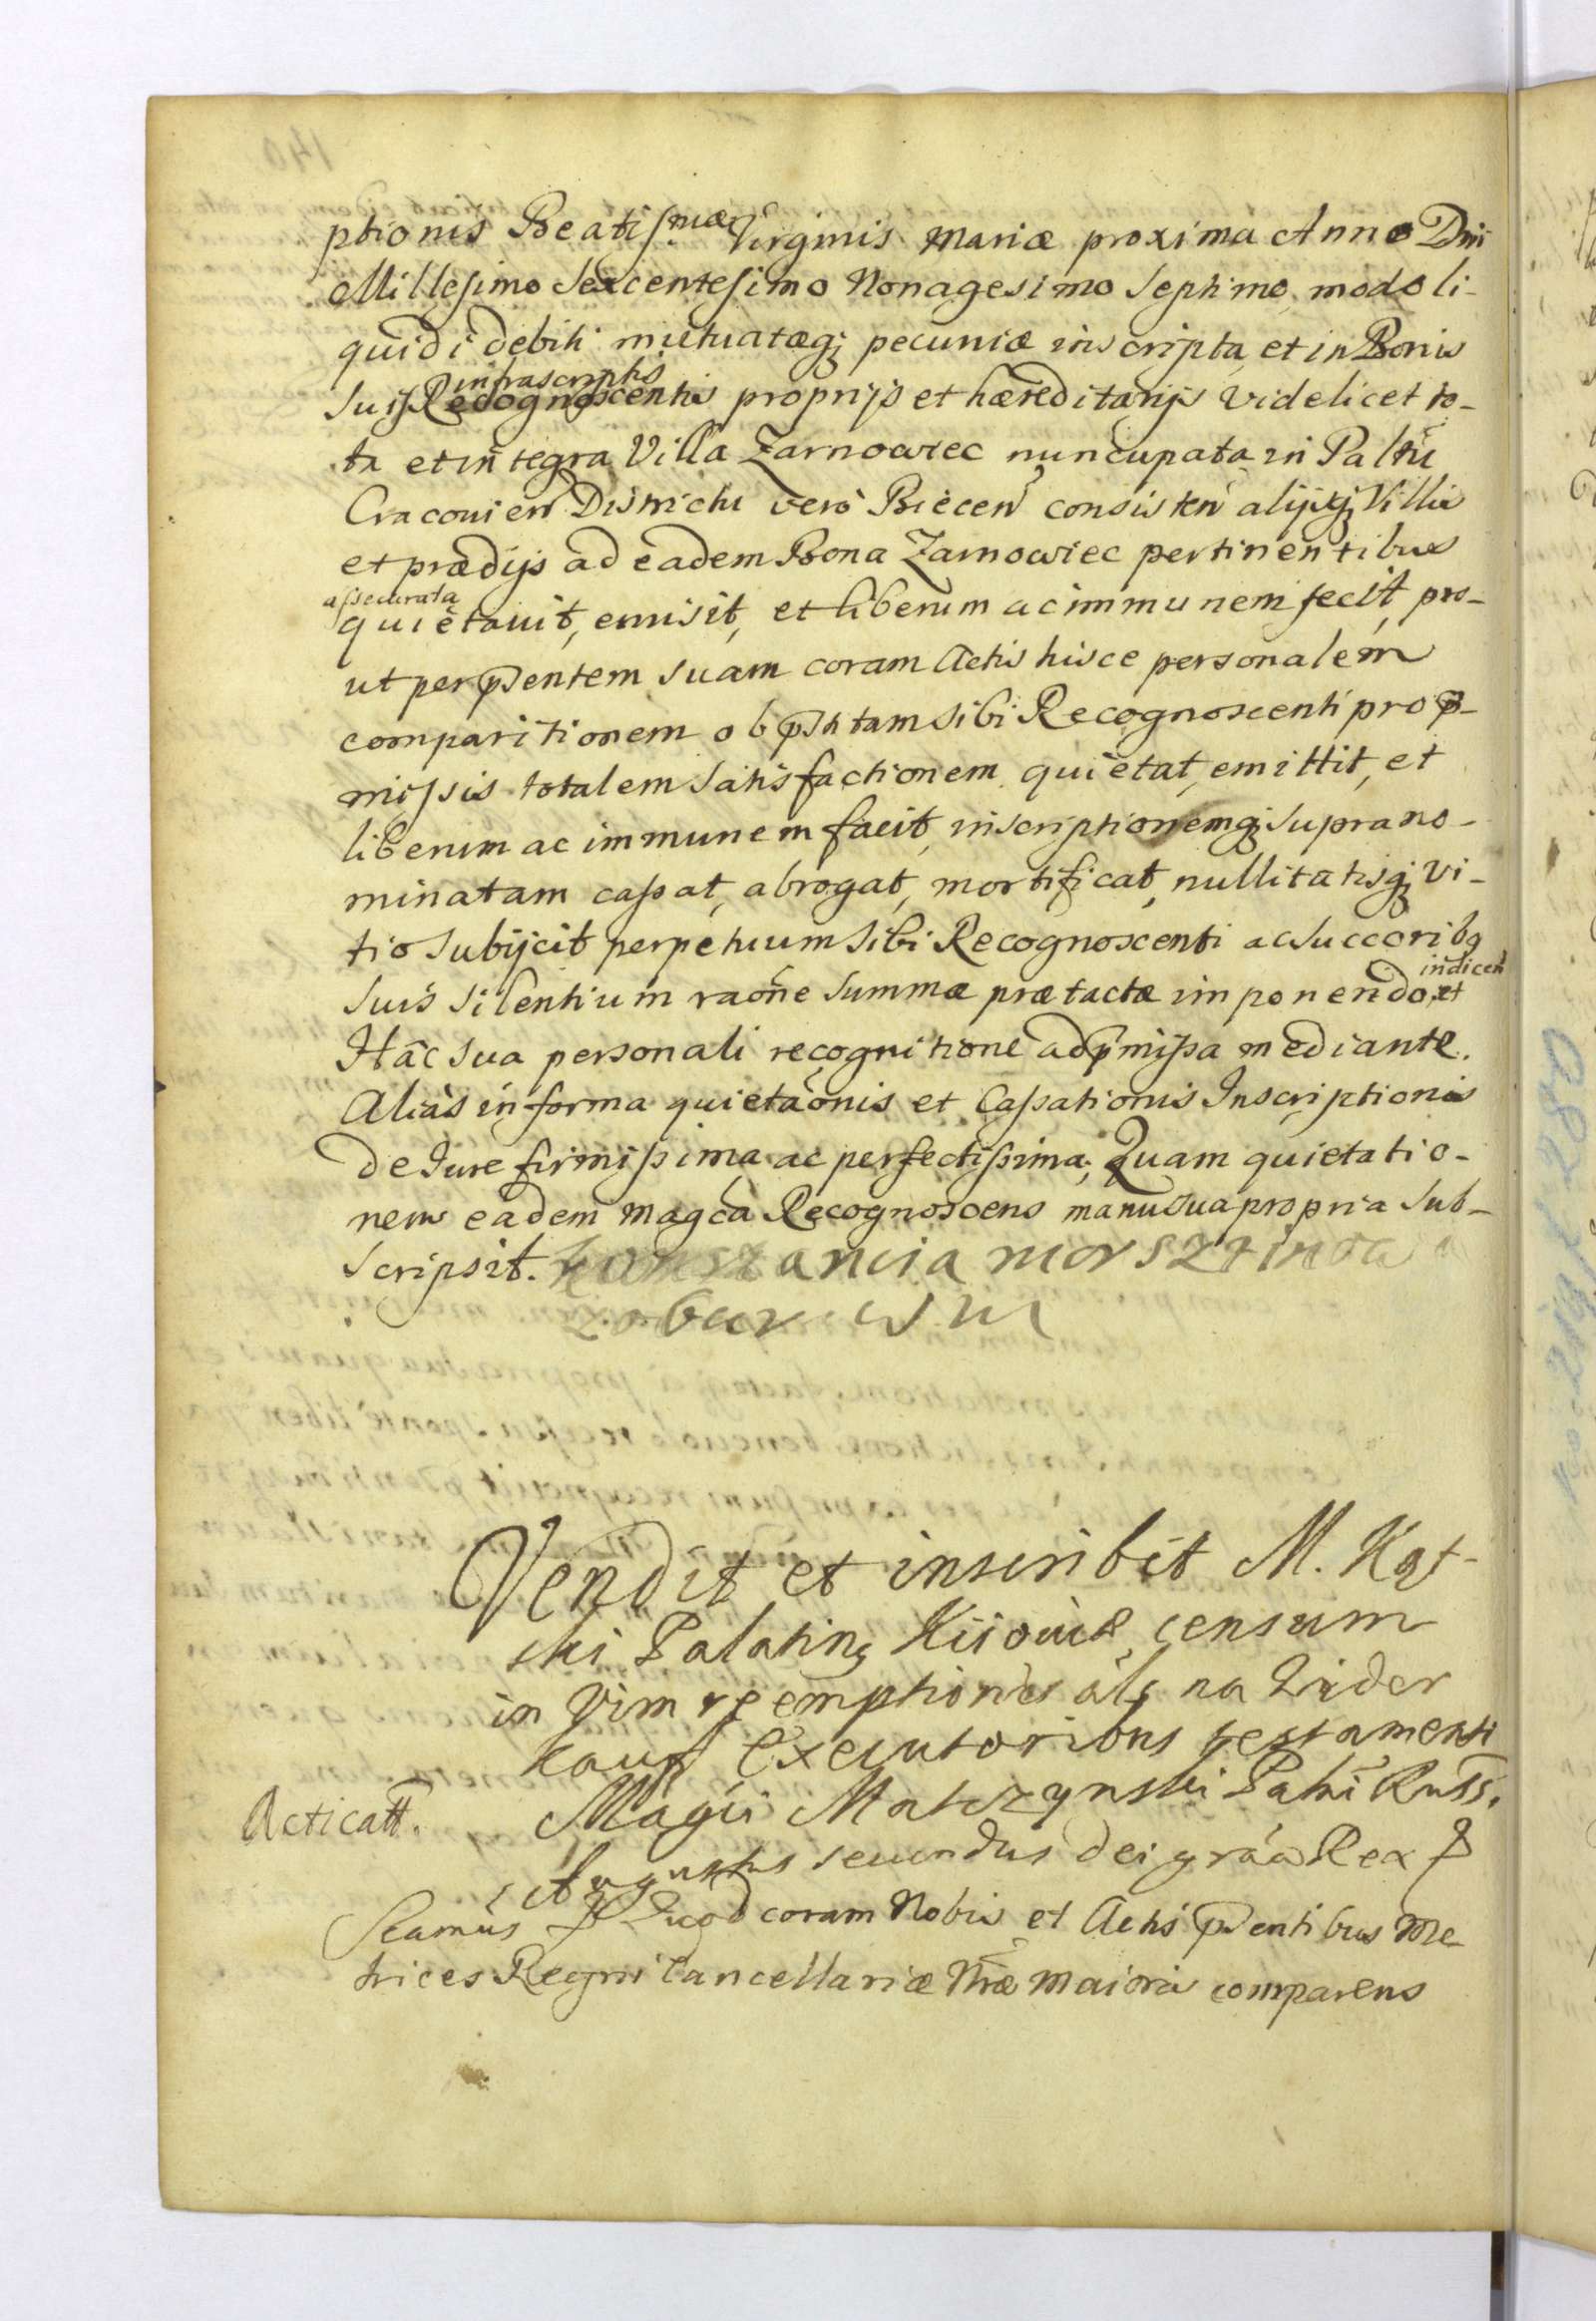 ptionis Beatissmæ Virginis Mariæ proxima Anno Dni
Millesimo Sexcentesimo Nonagesimo Septimo, modo li-
quidi debiti mutuatæq; pecuniæ inscripta, et in Bonis
infrascriptis
suis Recognoscentis proprijs et hæreditarijs videlicet to-
ta et integra Villa Zarnowiec nuncupata in Paltu
Cracouien Districtu vero Biecen consisten alijsq; Villis
et prædijs ad eadem Bona Zarnowiec pertinentibus
assecurata
quietauit, emisit, et liberum ac immunem fecit, pro-
ut per pntem suam coram Actis hisce personalem
comparitionem ob pstitam sibi Recognoscenti pro p-
missis totalem satisfactionem quietat, emittit, et
liberum ac immunem facit, inscriptionemq; supra no-
minatam cassat, abrogat, mortificat, nullitatisq; vi-
tio subijcit perpetuum sibi Recognoscenti ac succoribq
indicen
suis silentium raone summæ prætactæ imponendo, et
Hâc sua personali recognitione ad pmissa mediante.
Alias in forma quietaonis et Cassationis Inscriptionis
de Iure firmissima ac perfectissima; Quam quietatio-
nem eadem Magca Recognoscens manu sua propria sub-
scripsit. konstancia morsztinowa
Vendit et inscribit M. Kąt-
ski Palatinq Kiiouiæ censum
in Vim reemptionis als na Wider
kauff Executoribus testamenti
Acticatt. Magci Matczynski Palni Russ.
Augustus secundus Dei gráa Rex
Seamus Quod coram Nobis et Actis pntibus Me
trices Regni Cancellariæ Nræ Maioris comparens